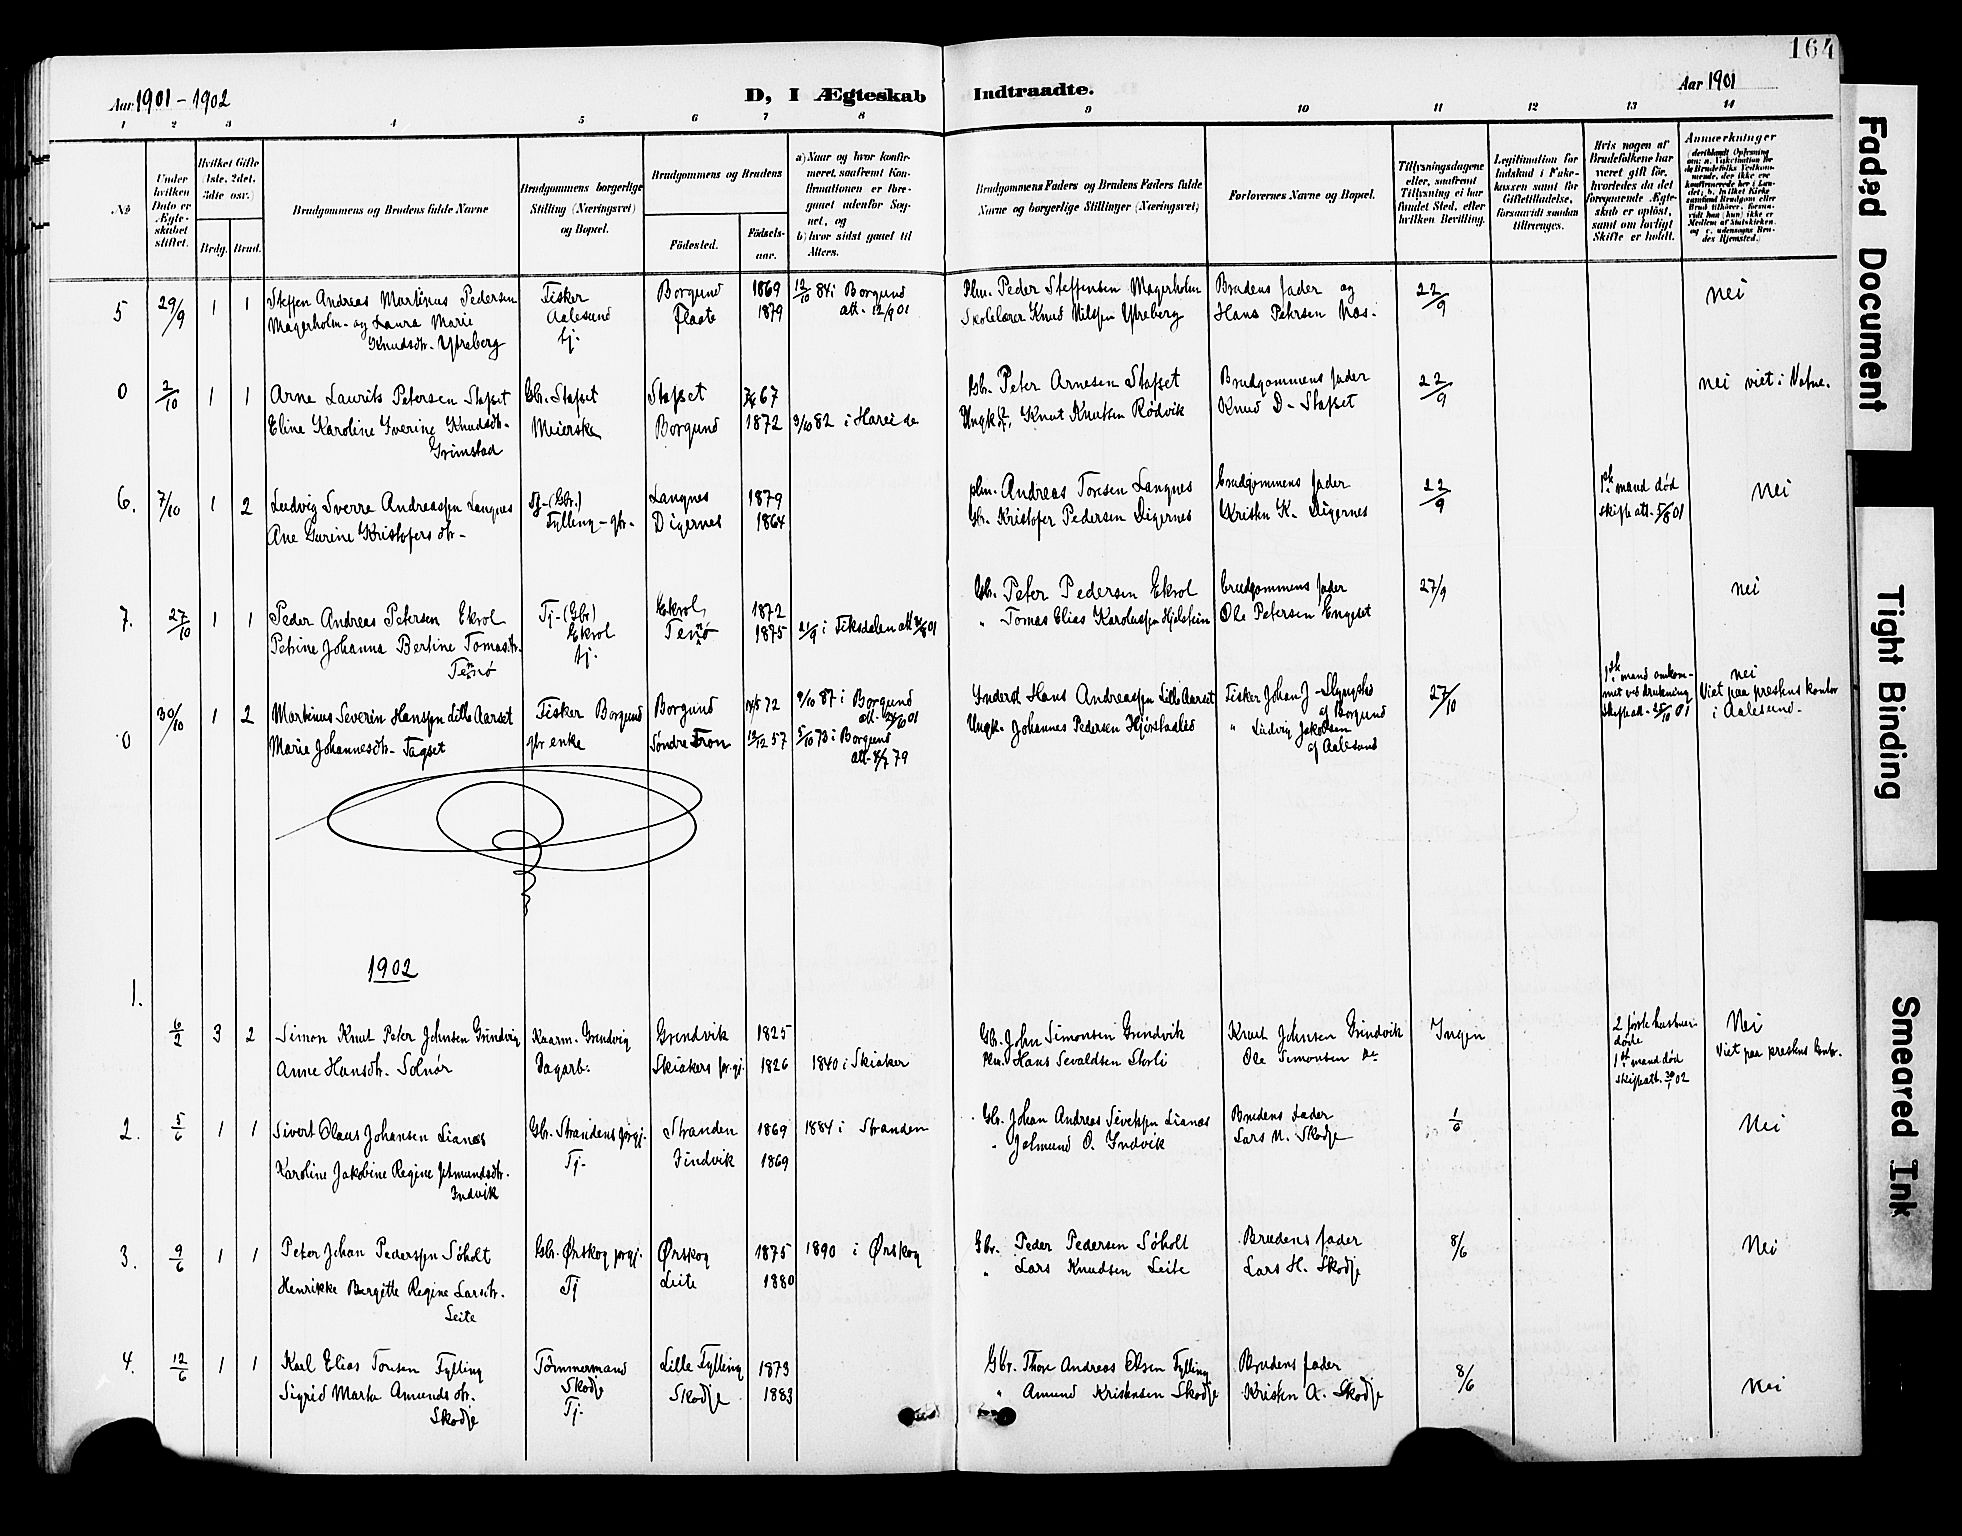 164
Aar 1901 - 1902
D, I Ægteskab Indtraadte.
Aar 1901
1 2 3 4 5 6 7 8 9 10 11 12 13 14
No
Under hvilken Dato er Ægteskabet stiftet.
Hvilket Gifte (1ste, 2det, 3die osv.)
Brdg. Brud.
Brudgommens og Brudens fulde Navne
Brudgommens borgerlige Stilling (Næringsvei) og Bopæl.
Brudgommens og Brudens
Födested.
Födsels-aar.
a) Naar og hvor konfirmeret, saafremt Konfirmationen er foregaaet udenfor Sognet, og
b) hvor sidst gaaet til Alters.
Brudgommens Faders og Brudens Faders fulde Navne og borgerlige Stillinger (Næringsvei)
Forlovernes Navne og Bopæl.
Tillysningsdagene eller, saafremt Tillysning ei har fundet Sted, efter hvilken Bevilling.
Legitimation for Indskud i Enkekassen samt for Giftetilladelse, forsaavidt saadan tiltrænges.
Hvis nogen af Brudefolkene har været gift før, hvorledes da det foregaaende Ægteskab er opløst, samt om lovligt Skifte er holdt.
Anmerkninger
5 29/9 1 1 Steffen Andreas Martinus Pedersen Fisker Borgund 1869 12/10 84 i Borgund Plm. Peder Steffensen Magerholm Brudens fader og 22/9 nei
Magerholm - og Laura Marie Aalesund Flaate 1879 att. 12/9 01 Skolelærer Knud Nilssen Ytreberg Hans Petersen Næs.
Knudsdtr. Ytreberg tj.
0 2/10 1 1 Arne Laurits Petersen Stafset Gb. Stafset Stafset 67 Gb. Peter Arnesen Stafset Brudgommens fader 22/9 nei viet i Vatne.
Eline Karoline Iverine Knudsdtr. Meierske Borgund 1872 3/10 82 i Hareide Ungk. Knut Knutsen Rødvik Knud D. Stafset
Grimstad
6. 7/10 1 2 Ludvig Sverre Andreassen Langnes Tj. (Gbr.) Langnes 1879 plm. Andreas Toresen Langnes brudgommens fader 22/9 1ste mand død nei
Ane Gurine Kristofersdtr. Fylling - gbr. Digernes 1864 Gb. Kristofer Pedersen Digernes Kristen K. Digernes skifteatt. 01
7. 27/10 1 1 Peder Andreas Petersen Ekrol Tj. (Gbr) Ekrol 1872 Gb. Peter Pedersen Ekrol brudgommens fader 27/9 nei
Petrine Johanna Bertine Tomasdtr. Ekrol Tenø 1875 21/9 i Fiksdalen att 01 " Tomas Elias Karolussen Hjelstein Ole Petersen Engeset
Tenø tj.
0 30/10 1 2 Martinus Severin Hanssen Lille Aarset Fisker Borgund Borgund 72 9/10 87 i Borgund Inderst Hans Andreassen Lille Aarset Fisker Johan J. 27/10 1ste mand omkommet ved drukning nei
att. 01 af Borgund skifteatt. 25/10 01 Viet paa prestens kontor
Marie Johannesdtr. Tagset gbr enke Søndre Fron 12/12 57 5/10 73 i Borgund Ungk. Johannes Pedersen Hjørstadlid " Ludvig Jakobsen i Aalesund.
att. 79 af Aalesund
1902
1. 6/2 3 2 Simon Knut Peter Johnsen Grindvig Kaarm. Grendvig Grendvik 1825 Gb. John Simonsen Grendvik Knut Johnsen Grindvik Ingen 2 første hustruer døde Nei
Anne Hansdtr. Solnør Dagarb. Skiakers prgj. 1826 1840 i Skiaker Plm. Hans Sevaldsen Storli Ole Simonsen Do 1ste mand død Viet paa prestens kontr.
skifteatt. 30/1 02
2. 5/6 1 1 Sivert Olaus Johansen Lianøs Gbr. Strandens prgj. Stranden 1869 1884 i Stranden Gb. Johan Andreas Sivertsen Lianøs Brudens Fader 1/6 Nei
Karoline Jakobine Regine Jetmundsdtr. Tj. Indvik 1869 " Jetmund O. Indvik Lars N. Skodje
Indvik
3. 9/6 1 1 Peter Johan Pederssen Søholt Gbr. Ørskog prgj. Ørskog 1875 1890 i Ørskog Gbr. Peder Pedersen Søholt Brudens fader 8/6 Nei
Henrikke Bergitte Regine Larsdtr. Tj Leite 1880 " Lars Knudsen Leite Lars H. Skodje
Leite
4. 12/6 1 1 Karl Elias Toresen Fylling Tømmermand Lille Fylling 1873 Gbr. Thore Andreas Olsen Fylling Brudens fader 8/6 Nei
Sigrid Marta Amundsdtr. Skodje Skodje 1883 " Amund Kristensen Skodje Kristen A. Skodje
Skodje Tj.
Faded Document
Tight Binding
Smeared Ink